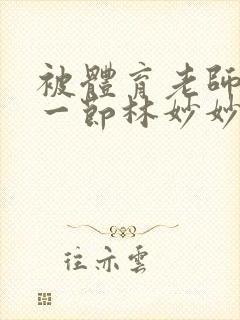 被體育老師
一節林妙妙
往亦雲